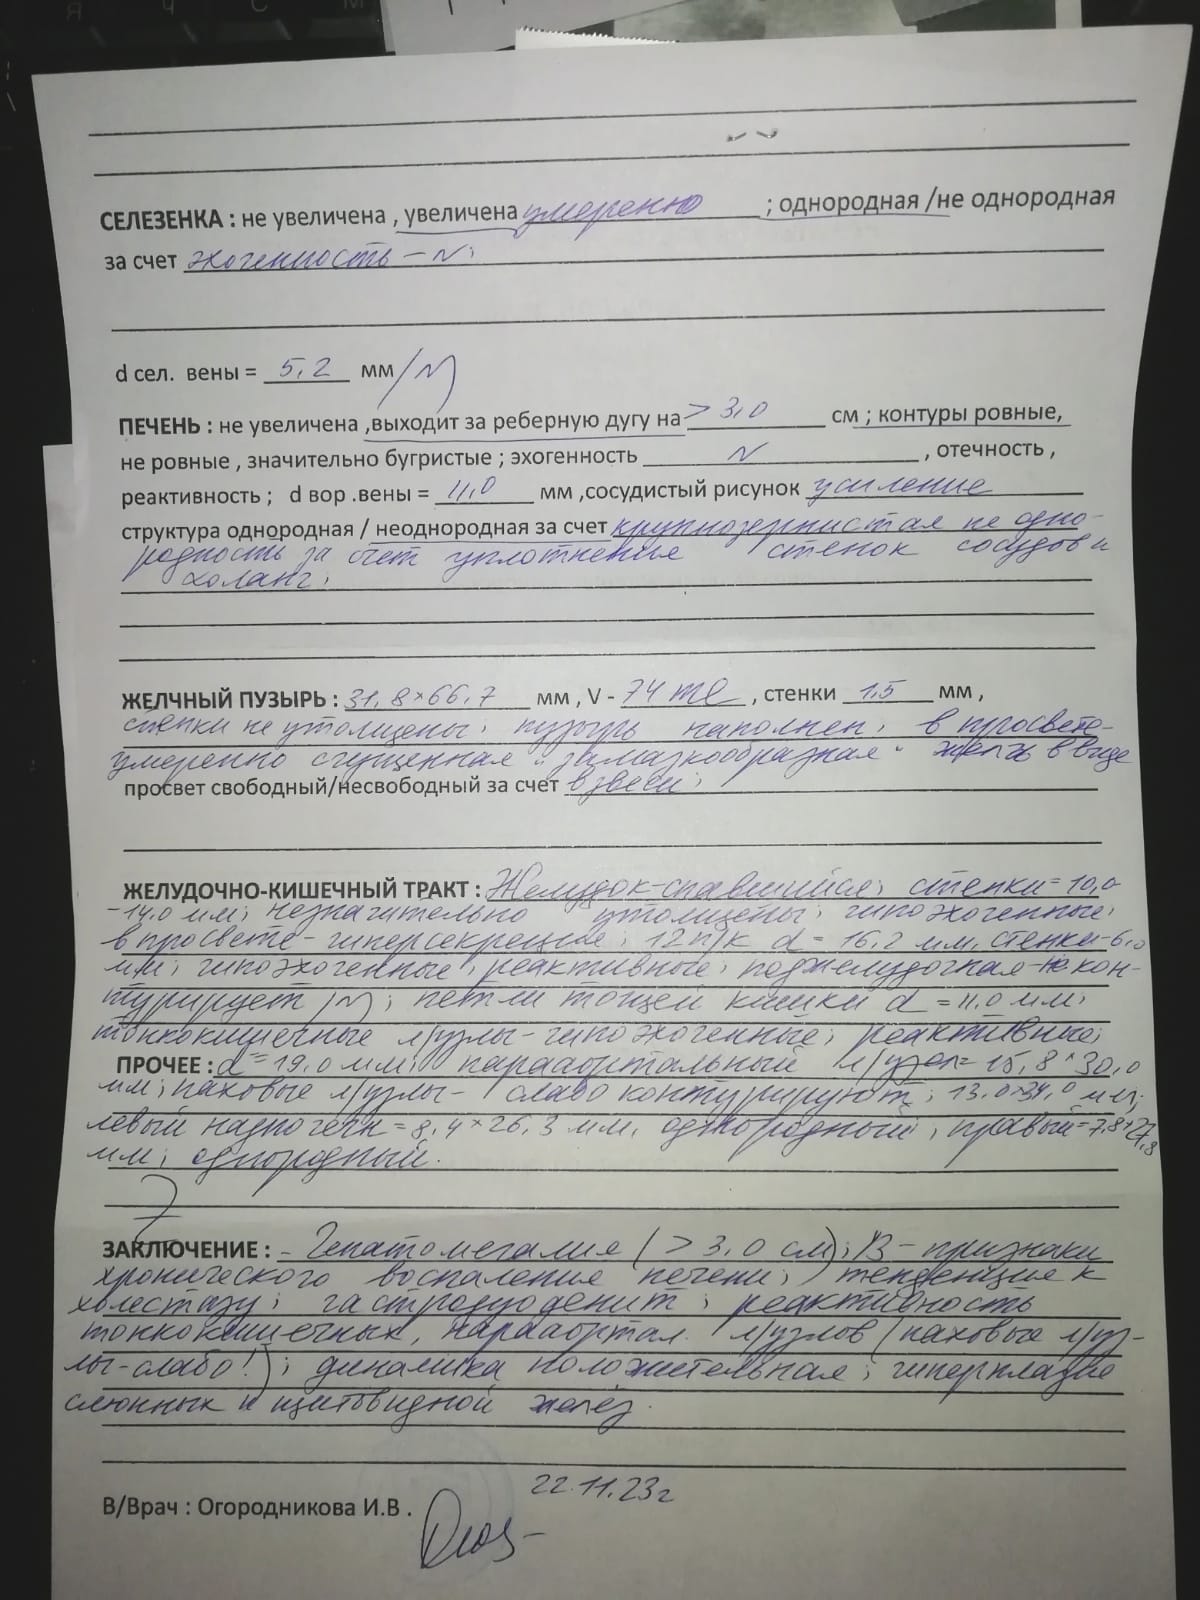 СЕЛЕЗЕНКА : не увеличена , увеличена умеренно ; однородная /не однородная
за счет эхогенность – N;
d сел. вены = 5,2 мм /N
ПЕЧЕНЬ : не увеличена ,выходит за реберную дугу на > 3,0 см ; контуры ровные,
не ровные , значительно бугристые ; эхогенность N , отечность ,
реактивность ; d вор .вены = 11,0 мм ,сосудистый рисунок усиление
структура однородная / неоднородная за счет крупнозернистая не одно-
родность за счет уплотнение стенок сосудов и
холанг.
ЖЕЛЧНЫЙ ПУЗЫРЬ : 31,8×66,7 мм , V - 74 ml , стенки 1,5 мм ,
стенки не утолщены; пузырь наполнен; в просвете-
умеренно сгущенная "замазкообразная" желчь в виде
просвет свободный/несвободный за счет взвеси;
ЖЕЛУДОЧНО-КИШЕЧНЫЙ ТРАКТ : Желудок-спавшийся; стенки=10,0
-14,0 мм; незначительно утолщены; гипоэхогенные;
в просвете-гиперсекреция; 12п/к d= 16,2 мм, стенки-6,0
мм; гипоэхогенные; реактивные; поджелудочная-не кон-
турирует /N/; петли тощей кишки d =11,0 мм;
тонкокишечные л/узлы-гипоэхогенные; реактивные;
ПРОЧЕЕ : d=19,0 мм; парааортальный л/узел=15,8×30,0
мм; паховые л/узлы- слабо контурируют; 13,0×34,0 мм;
левый надпочечн=8,4×26,3 мм, однородный; правый=7,8×27,8
мм; однородный.
ЗАКЛЮЧЕНИЕ : - Гепатомегалия (> 3,0 см); В-признаки
хронического воспаления печени; тенденция к
холестазу; гастродуоденит; реактивность
тонкокишечных, парааортал. л/узлов (паховые л/уз-
лы-слабо!); динамика положительная; гиперплазия
слюнных и щитовидной желез.
22.11.23г
В/Врач : Огородникова И.В .